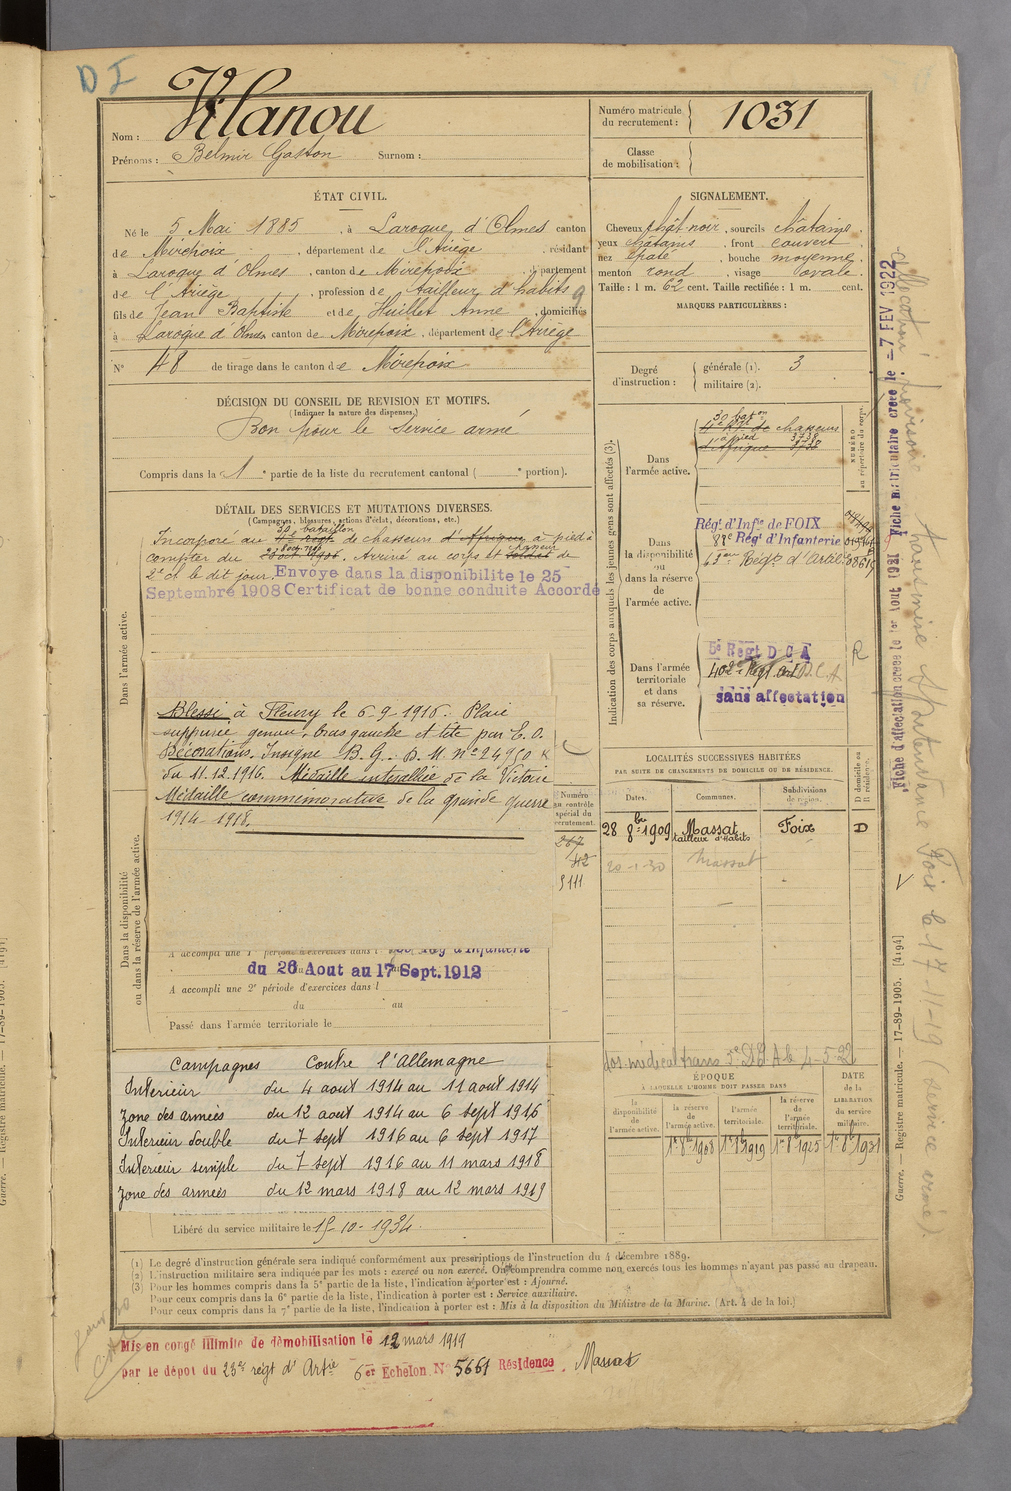 D I
Nom : Vilanou
Prénoms : Belmir Gaston Surnom :
Numéro matricule
du recrutement : 1031
Classe
de mobilisation :
ÉTAT CIVIL.
Né le 5 Mai 1885, à Laroque d'Olmes canton
de Mirepoix, département de l'Ariège, résidant
à Laroque d'Olmes, canton de Mirepoix, département
de l'Ariège, profession de tailleur d'habits
fils de Jean Baptiste et de Huillet Anne, domiciliés
à Laroque d'Olmes canton de Mirepoix, département de l'Ariège
N° 48 de tirage dans le canton de Mirepoix
SIGNALEMENT.
Cheveux chât noir, sourcils châtains
yeux châtains, front couvert
nez épaté, bouche moyenne
menton rond, visage ovale.
Taille : 1 m. 62 cent. Taille rectifiée : 1 m. cent.
MARQUES PARTICULIÈRES :
Degré
d'instruction :
générale (1). 3
militaire (2).
DÉCISION DU CONSEIL DE REVISION ET MOTIFS.
(Indiquer la nature des dispenses.)
Bon pour le Service armé
Compris dans la 1e partie de la liste du recrutement cantonal ( e portion).
DÉTAIL DES SERVICES ET MUTATIONS DIVERSES.
(Campagnes, blessures, actions d'éclat, décorations, etc.)
30 bataillon
Incorporé au de chasseurs d'Afrique à pied à
compter du . Arrivé au corps et chasseur de
2e cl le dit jour. Envoyé dans la disponibilite le 25
Septembre 1908 Certificat de bonne conduite Accordé
Dans l'armée active.
Blessé à Fleury le 6-9-1916. Plaie
suppurée genou, bras gauche et tête par E. O.
Décorations. Insigne B. G. - D. M. n° 24950 K
du 11.12.1916. Médaille interalliée de la Victoire
Médaille commémorative de la grande guerre
1914-1918.
Dans la disponibilité
ou dans la réserve de l'armée active.
A accompli une 1e période d'exercices dans l Rég d'Infanterie
du 26 Aout au 17 Sept. 1912
A accompli une 2e période d'exercices dans l
du au
Passé dans l'armée territoriale le
Campagnes Contre l'Allemagne
Intérieur du 4 août 1914 au 11 août 1914
Zone des armées du 12 août 1914 au 6 sept 1916
Intérieur double du 7 sept 1916 au 6 sept 1917
Intérieur simple du 7 sept 1916 au 11 mars 1918
Zone des armées du 12 mars 1918 au 12 mars 1919
Libéré du service militaire le 15-10-1934
Indication des corps auxquels les jeunes gens sont affectés (3).
NUMÉRO
au répertoire du corps.
Dans
l'armée active.
30 baton
de chasseurs
à pied 3738
d'Afrique 3738
Dans
la disponibilité
ou
dans la réserve
de
l'armée active.
Régt d'Infie de FOIX
88e Régt d'Infanterie
Régt d'Artil.
Dans l'armée
territoriale
et dans
sa réserve.
5e Régt D C A
402e Régt art D.C.A
sans affectation
R
LOCALITÉS SUCCESSIVES HABITÉES
PAR SUITE DE CHANGEMENTS DE DOMICILE OU DE RÉSIDENCE.
Dates. Communes. Subdivisions
de région. D domicile ou
R résidence.
28 8bre 1909 Massat Foix D
tailleur d'habits
20-1-30 Massat
Numéro
au contrôle
spécial du
recrutement.
267
412
5111
dos. médical trans 5e D C A le 4-5-22
ÉPOQUE
À LAQUELLE L'HOMME DOIT PASSER DANS
DATE
de la
LIBÉRATION
du service
militaire.
la
disponibilité
de
l'armée active.
la réserve
de
l'armée active.
l'armée
territoriale.
la réserve
de
l'armée
territoriale.
1er 8bre 1908 1er 8bre 1919 1er 8bre 1925 1er 8bre 1931
(1) Le degré d'instruction générale sera indiqué conformément aux prescriptions de l'instruction du 4 décembre 1889.
(2) L'instruction militaire sera indiquée par les mots : exercé ou non exercé. On comprendra comme non exercés tous les hommes n'ayant pas passé au drapeau.
(3) Pour les hommes compris dans la 5e partie de la liste, l'indication à porter est : Ajourné.
Pour ceux compris dans la 6e partie de la liste, l'indication à porter est : Service auxiliaire.
Pour ceux compris dans la 7e partie de la liste, l'indication à porter est : Mis à la disposition du Ministre de la Marine. (Art. 4 de la loi.)
Mis en congé illimité de démobilisation le 12 mars 1919
par le dépot du 23e régt d'Artie 6er Echelon N° 5661 Résidence Massat
Fiche d'affectation créée le 1er Aout 1921 Fiche matriculaire créée le -7 FEV 1922
allocation provisoire transmise Intendance Foix le 17-11-19 (service armé).
Guerre. — Registre matricule. — 17-89-1905. [4194]